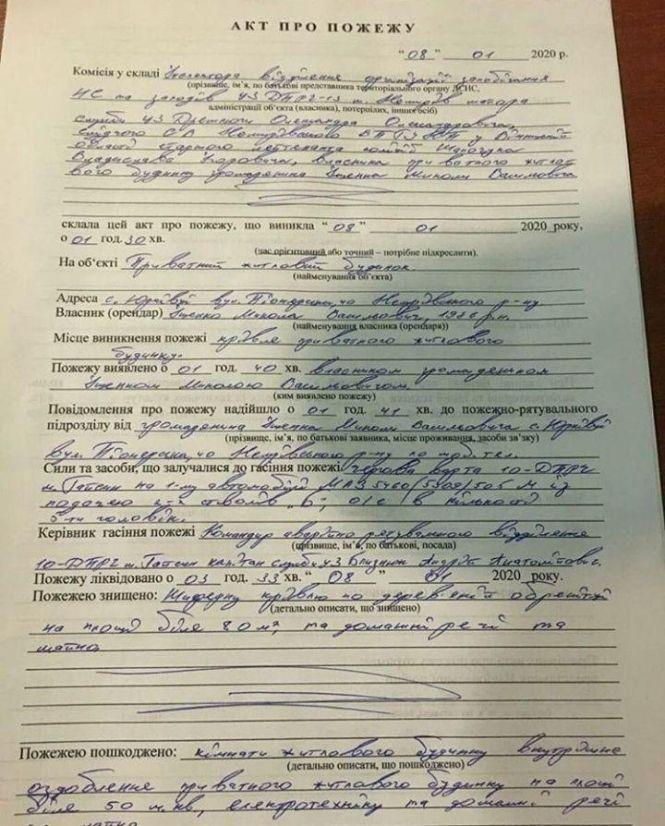 АКТ ПРО ПОЖЕЖУ
“ 08 ” 01 2020 р.
Комісія у складі Інспектора відділення організації запобігання
(прізвище, ім’я, по батькові представника територіального органу ДСНС,
НС та заходів 43 ДПРЧ-13 м. Немирів майора
адміністрації об’єкта (власника), потерпілих, інших осіб)
служби ЦЗ Олександра
слідчого СВ Немирівського ВП ГУНП у Вінницькій
області старшого лейтенанта поліції
Владислава Ігоровича, власника приватного житло
вого будинку громадянина Іщенка Миколи Васильовича
склала цей акт про пожежу, що виникла “ 08 ” 01 2020_року,
о 01 год. 30 хв.
(час орієнтовний або точний – потрібне підкреслити).
На об’єкті Приватний житловий будинок
(найменування об’єкта)
Адреса с. Юрківці вул. Піонерська, 40 Немирівського р-ну
Власник (орендар) Іщенко Микола Васильович, р.н.
(найменування власника (орендаря))
Місце виникнення пожежі крівля приватного житлового
будинку.
Пожежу виявлено о 01 год. 40 хв. власником громадянином
Іщенком Миколою Васильовичем.
(ким виявлено пожежу)
Повідомлення про пожежу надійшло о 01 год. 41 хв. до пожежно-рятувального
підрозділу від громадянина Іщенка Миколи Васильовича с. Юрківці
(прізвище, ім’я, по батькові заявника, місце проживання, засоби зв’язку)
вул. Піонерська, 40 Немирівського р-ну по моб. тел.
Сили та засоби, що залучалися до гасіння пожежі чергова варта 10-ДПРЧ
м. Гайсин на 1-му автомобілі із
подачею стволів „Б”; о/с в кількості
5-ти чоловік.
Керівник гасіння пожежі Командир аварійно рятувального відділення
(прізвище, ім’я, по батькові, посада)
10-ДПРЧ м. Гайсин капітан служби ЦЗ Близнюк Андрій Анатолійович.
Пожежу ліквідовано о 03 год. 33 хв. “ 08 ” 01 2020 року.
Пожежею знищено: Шиферну крівлю по дерев’яній обрешітці
(детально описати, що знищено)
на площі біля 80 м², та домашні речі та
майно
Пожежею пошкоджено: кімнати житлового будинку внутрішнє
(детально описати, що пошкоджено)
оздоблення приватного житлового будинку на площі
біля 50 м.кв, електротехніку та домашні речі